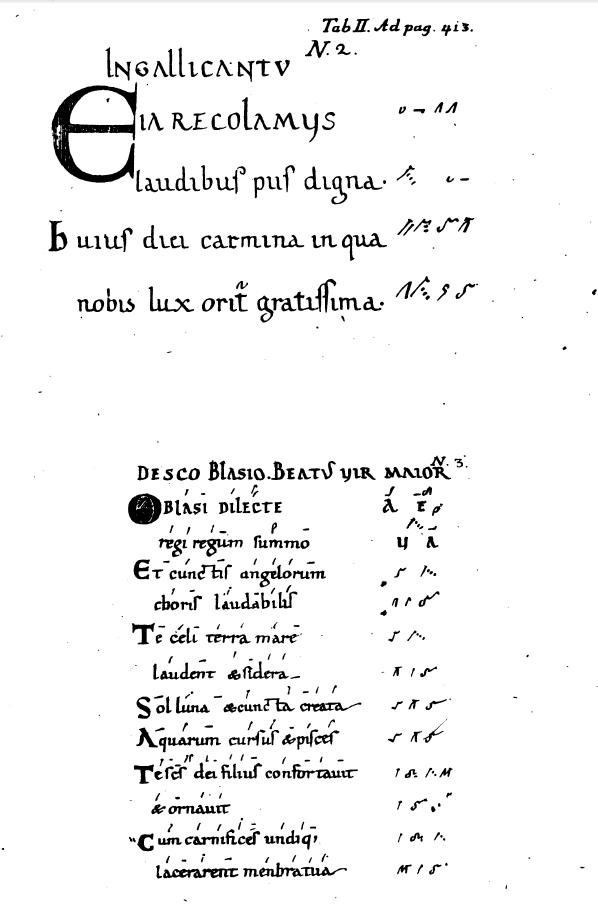 Tab II. Ad pag. 413.
N. 2.
IN GALLICANTV
EIA RECOLAMVS
laudibuſ piiſ digna.
huiuſ diei carmina in qua
nobis lux orit̃ gratiſſima.
N. 3.
DE SCO BLASIO. BEATVS VIR MAIOR
O BLASI DILECTE
A E
regi regum ſummo
V A
Et cunctiſ angelorum
choriſ laudabiliſ
Te celi terra mare
laudent & ſidera
Sol luna & cuncta creata
Aquarum curſuſ & piſceſ
Te ſcſ dei filiuſ confortauit
& ornauit
Cum carnificeſ undiq;
lacerarent menbra tua